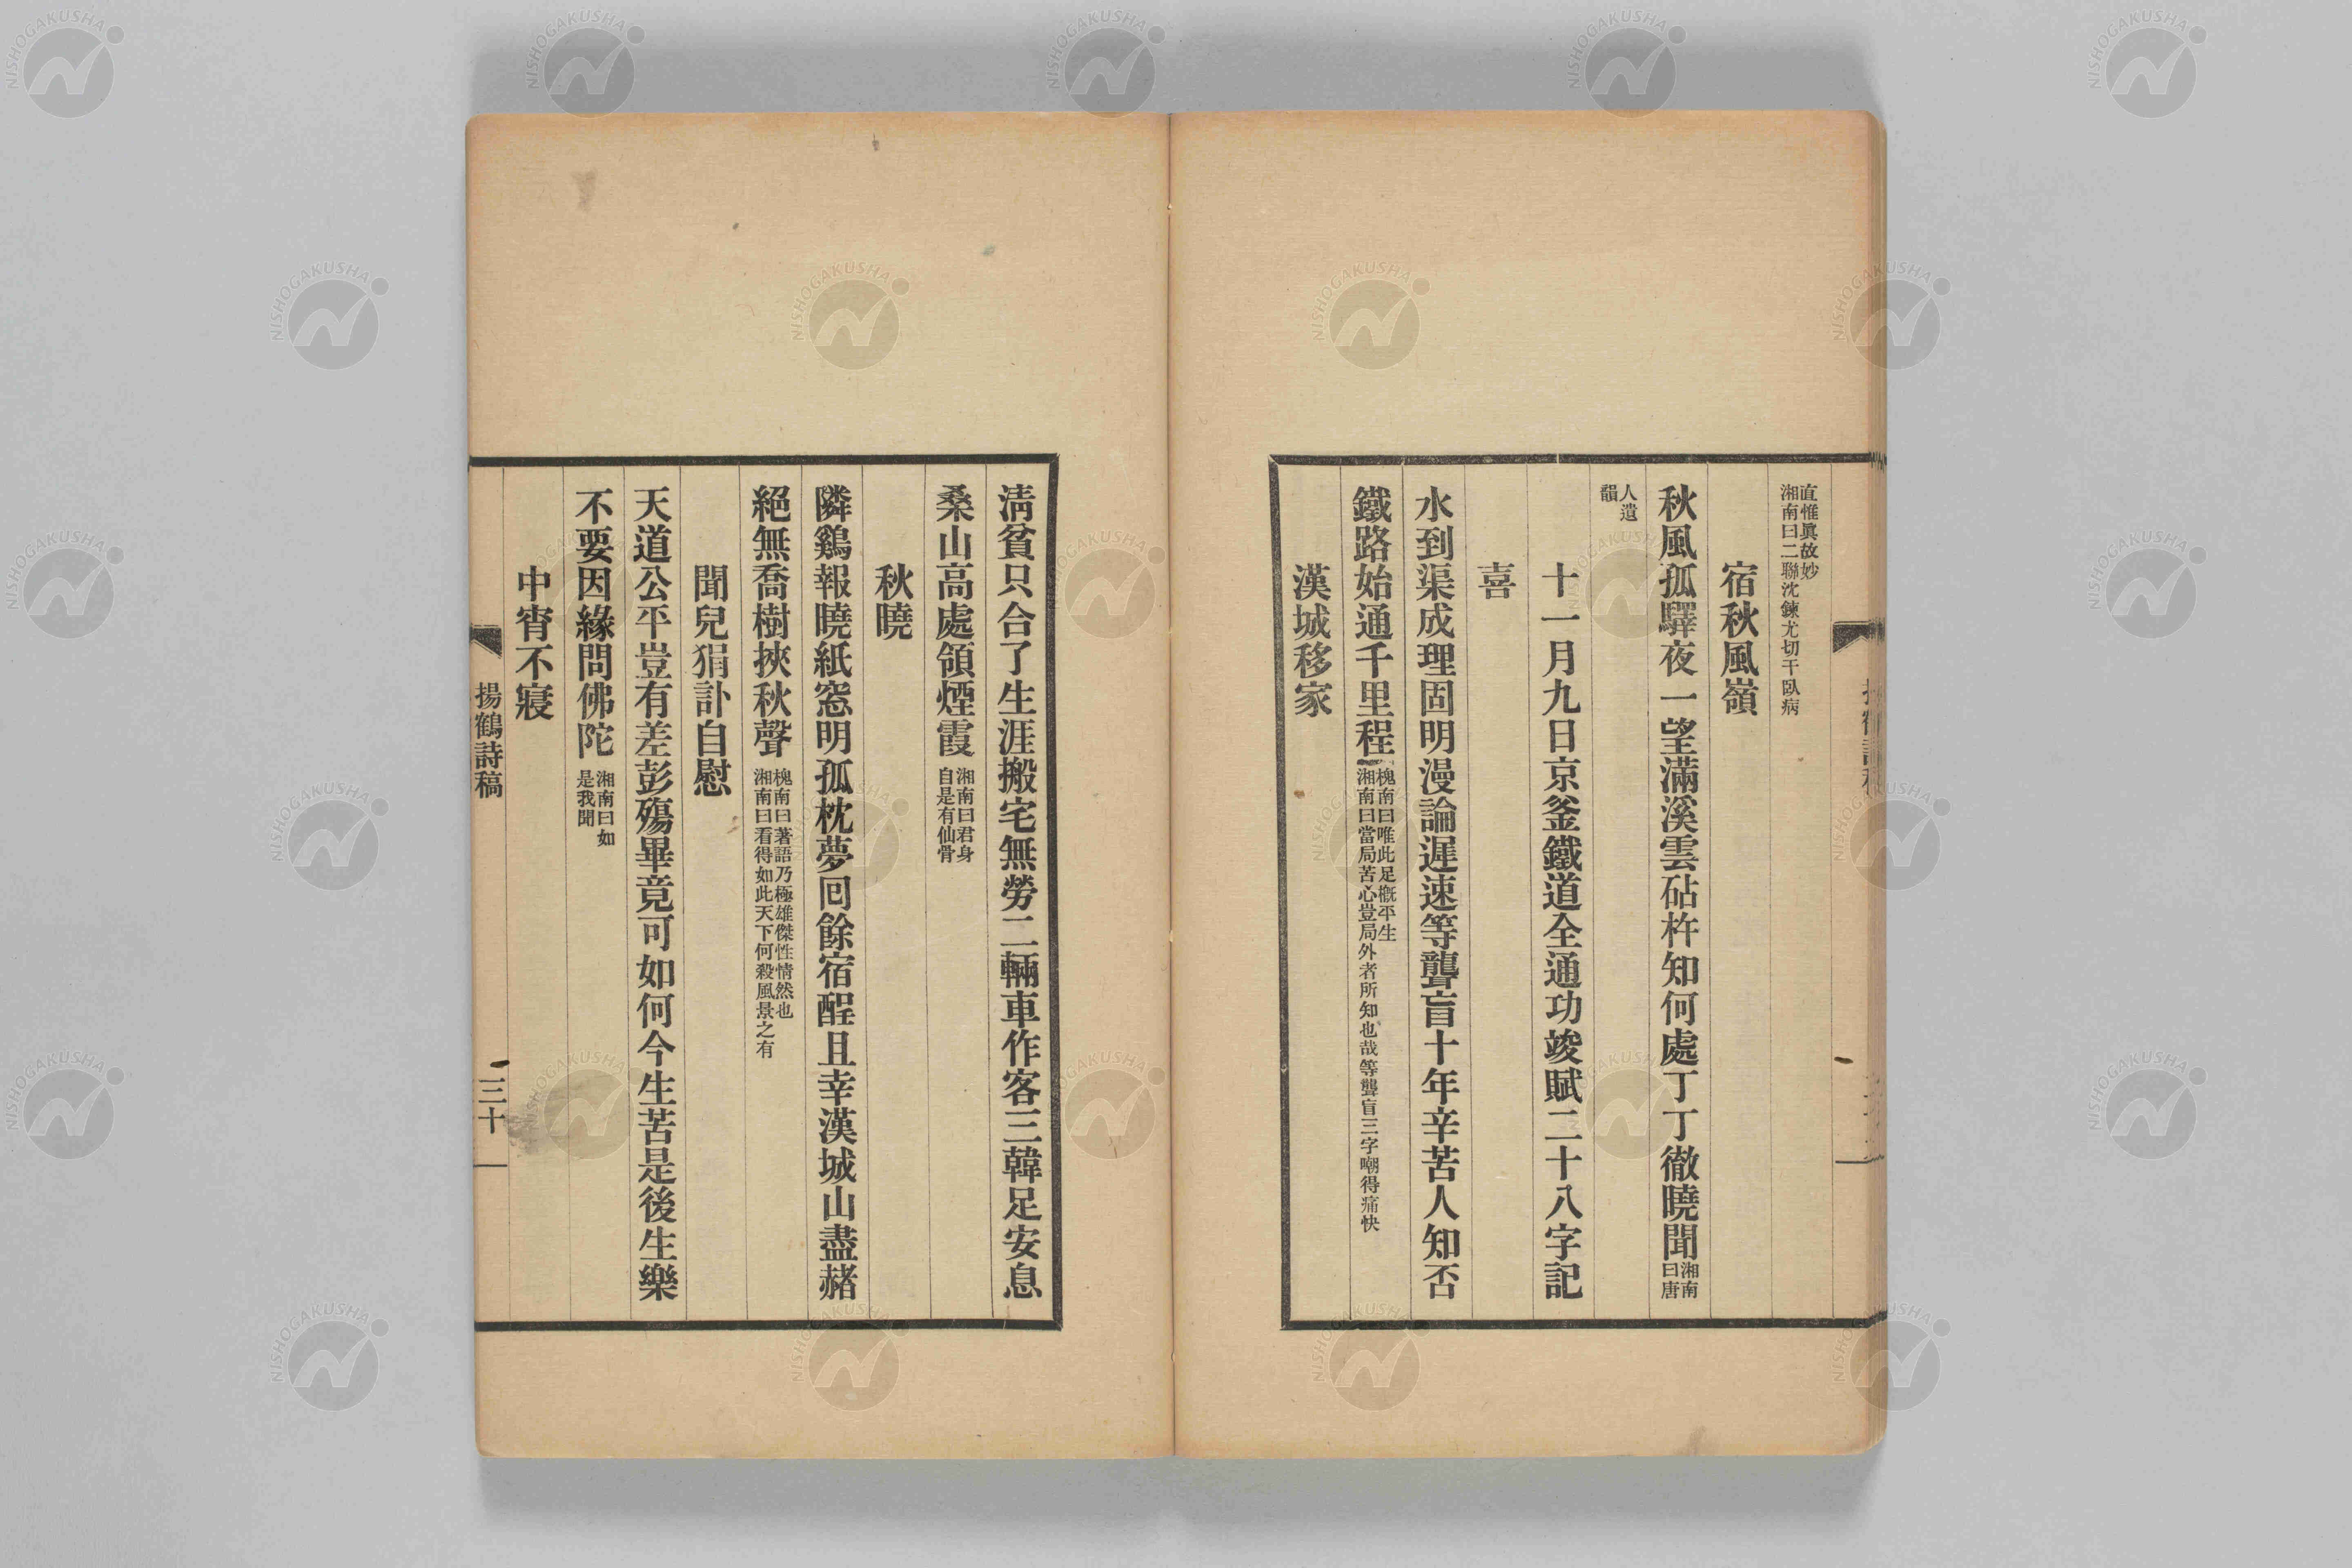 直惟眞故妙
湘南曰二聯沈鍊尤切干臥病
宿秋風嶺
秋風孤驛夜一望滿溪雲砧杵知何處丁丁徹曉聞
湘南
曰唐
人遺
韻
十一月九日京釜鐵道全通功竣賦二十八字記
喜
水到渠成理固明漫論遲速等聾盲十年辛苦人知否
鐵路始通千里程
槐南曰唯此足慨平生
湘南曰當局苦心豈局外者所知也哉等聾盲三字嘲得痛快
漢城移家
淸貧只合了生涯搬宅無勞二輛車作客三韓足安息
桑山高處領煙霞
湘南曰君身
自是有仙骨
秋曉
隣鷄報曉紙窓明孤枕夢回餘宿酲且幸漢城山盡赭
絕無喬樹挾秋聲
槐南曰著語乃極雄傑性情然也
湘南曰看得如此天下何殺風景之有
聞兒狷訃自慰
天道公平豈有差彭殤畢竟可如何今生苦是後生樂
不要因緣問佛陀
湘南曰如
是我聞
中宵不寢
揚鶴詩稿
三十
NISHOGAKUSHA